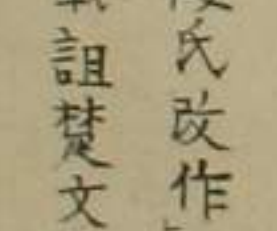 氏改作
詛楚文